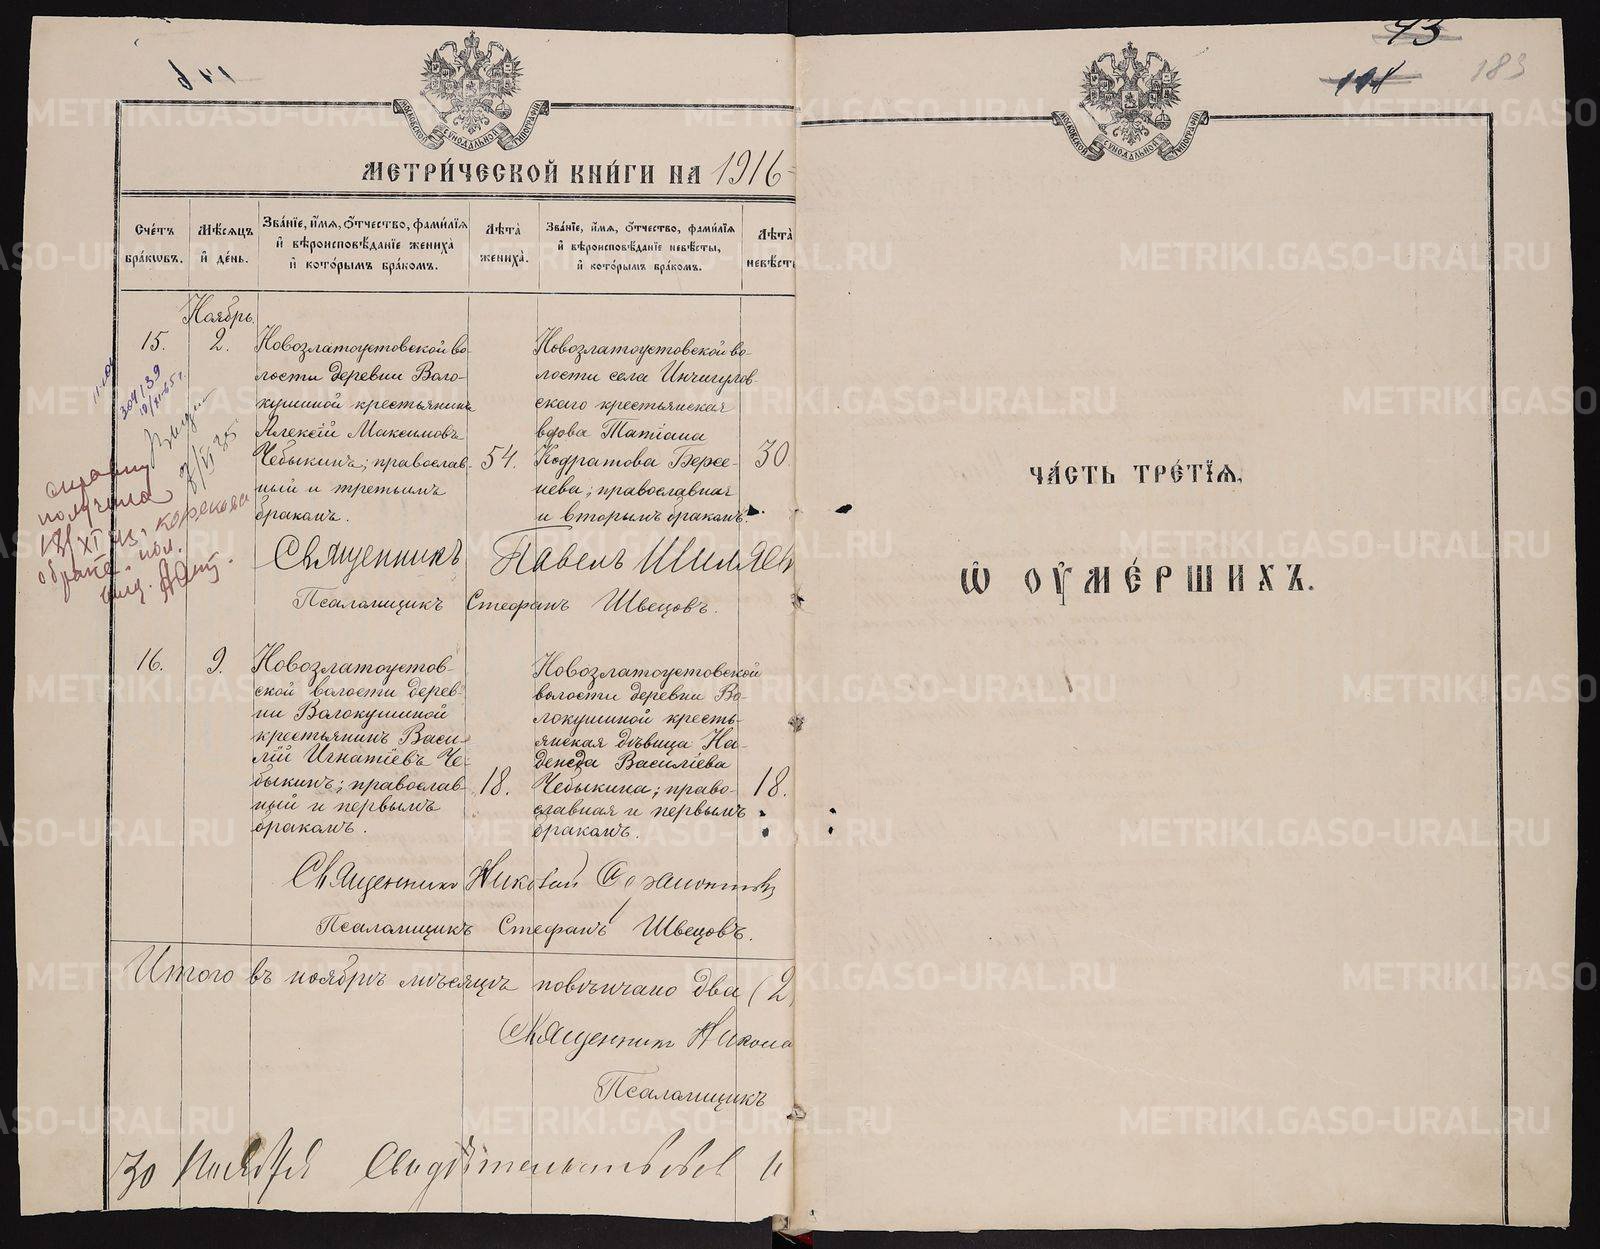 МЕТРИКИ.GASO-URAL.RU
МОСКОВСКОЙ СѴНОДАЛЬНОЙ ТИПОГРАФІИ
МЕТРИ́ЧЕСКОЙ КНИ́ГИ НА 1916
Сче́тъ бра́кѡвъ.
Мѣ́сяцъ и҆ де́нь.
Зва́нїе, и҆́мя, ѻ҆́тчество, фами́лїя и҆ вѣроисповѣ́данїе жениха̀ и҆ кото́рымъ бра́комъ.
Лѣта̀ жениха̀.
Зва́нїе, и҆́мя, ѻ҆́тчество, фами́лїя и҆ вѣроисповѣ́данїе невѣ́сты, и҆ кото́рымъ бра́комъ.
Лѣта̀ невѣ́ст
Ноябрь.
15.
2.
Новозлатоустовской во-
лости деревни Воло-
кушиной крестьянинъ
Алексій Максимовъ
Чебыкинъ; православ-
ный и третьимъ
бракомъ.
54.
Новозлатоустовской во-
лости села Инчигулов-
скаго крестьянская
вдова Татіана
Кодратова Берсе-
нева; православная
и вторымъ бракомъ.
30.
Священникъ Павелъ Шиляев
Псаломщикъ Стефанъ Швецовъ.
304139
справку
получила
16.
9.
Новозлатоустов-
ской волости дерев-
ни Волокушиной
крестьянинъ Васи-
лій Игнатіевъ Че-
быкинъ; православ-
ный и первымъ
бракомъ.
18.
Новозлатоустовской
волости деревни Во-
локушиной кресть-
янская дѣвица На-
дежда Василіева
Чебыкина; право-
славная и первымъ
бракомъ.
18.
Священникъ Николай
Псаломщикъ Стефанъ Швецовъ.
Итого въ ноябрѣ мѣсяцѣ повѣнчано два (2
Священникъ Никола
Псаломщикъ
30 Ноября
43
183
МОСКОВСКОЙ СѴНОДАЛЬНОЙ ТИПОГРАФІИ
ЧА́СТЬ ТРЕ́ТЇЯ,
Ѡ҆ ОУ҆МЕ́РШИХЪ.